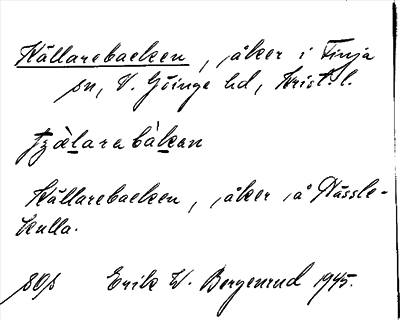 Källarebacken, åker i Finja
sn, V. Göinge hd, Krist. l.
källarebacken, åker å Nässle-
kulla.
Erik W. Bergenrud 1945.